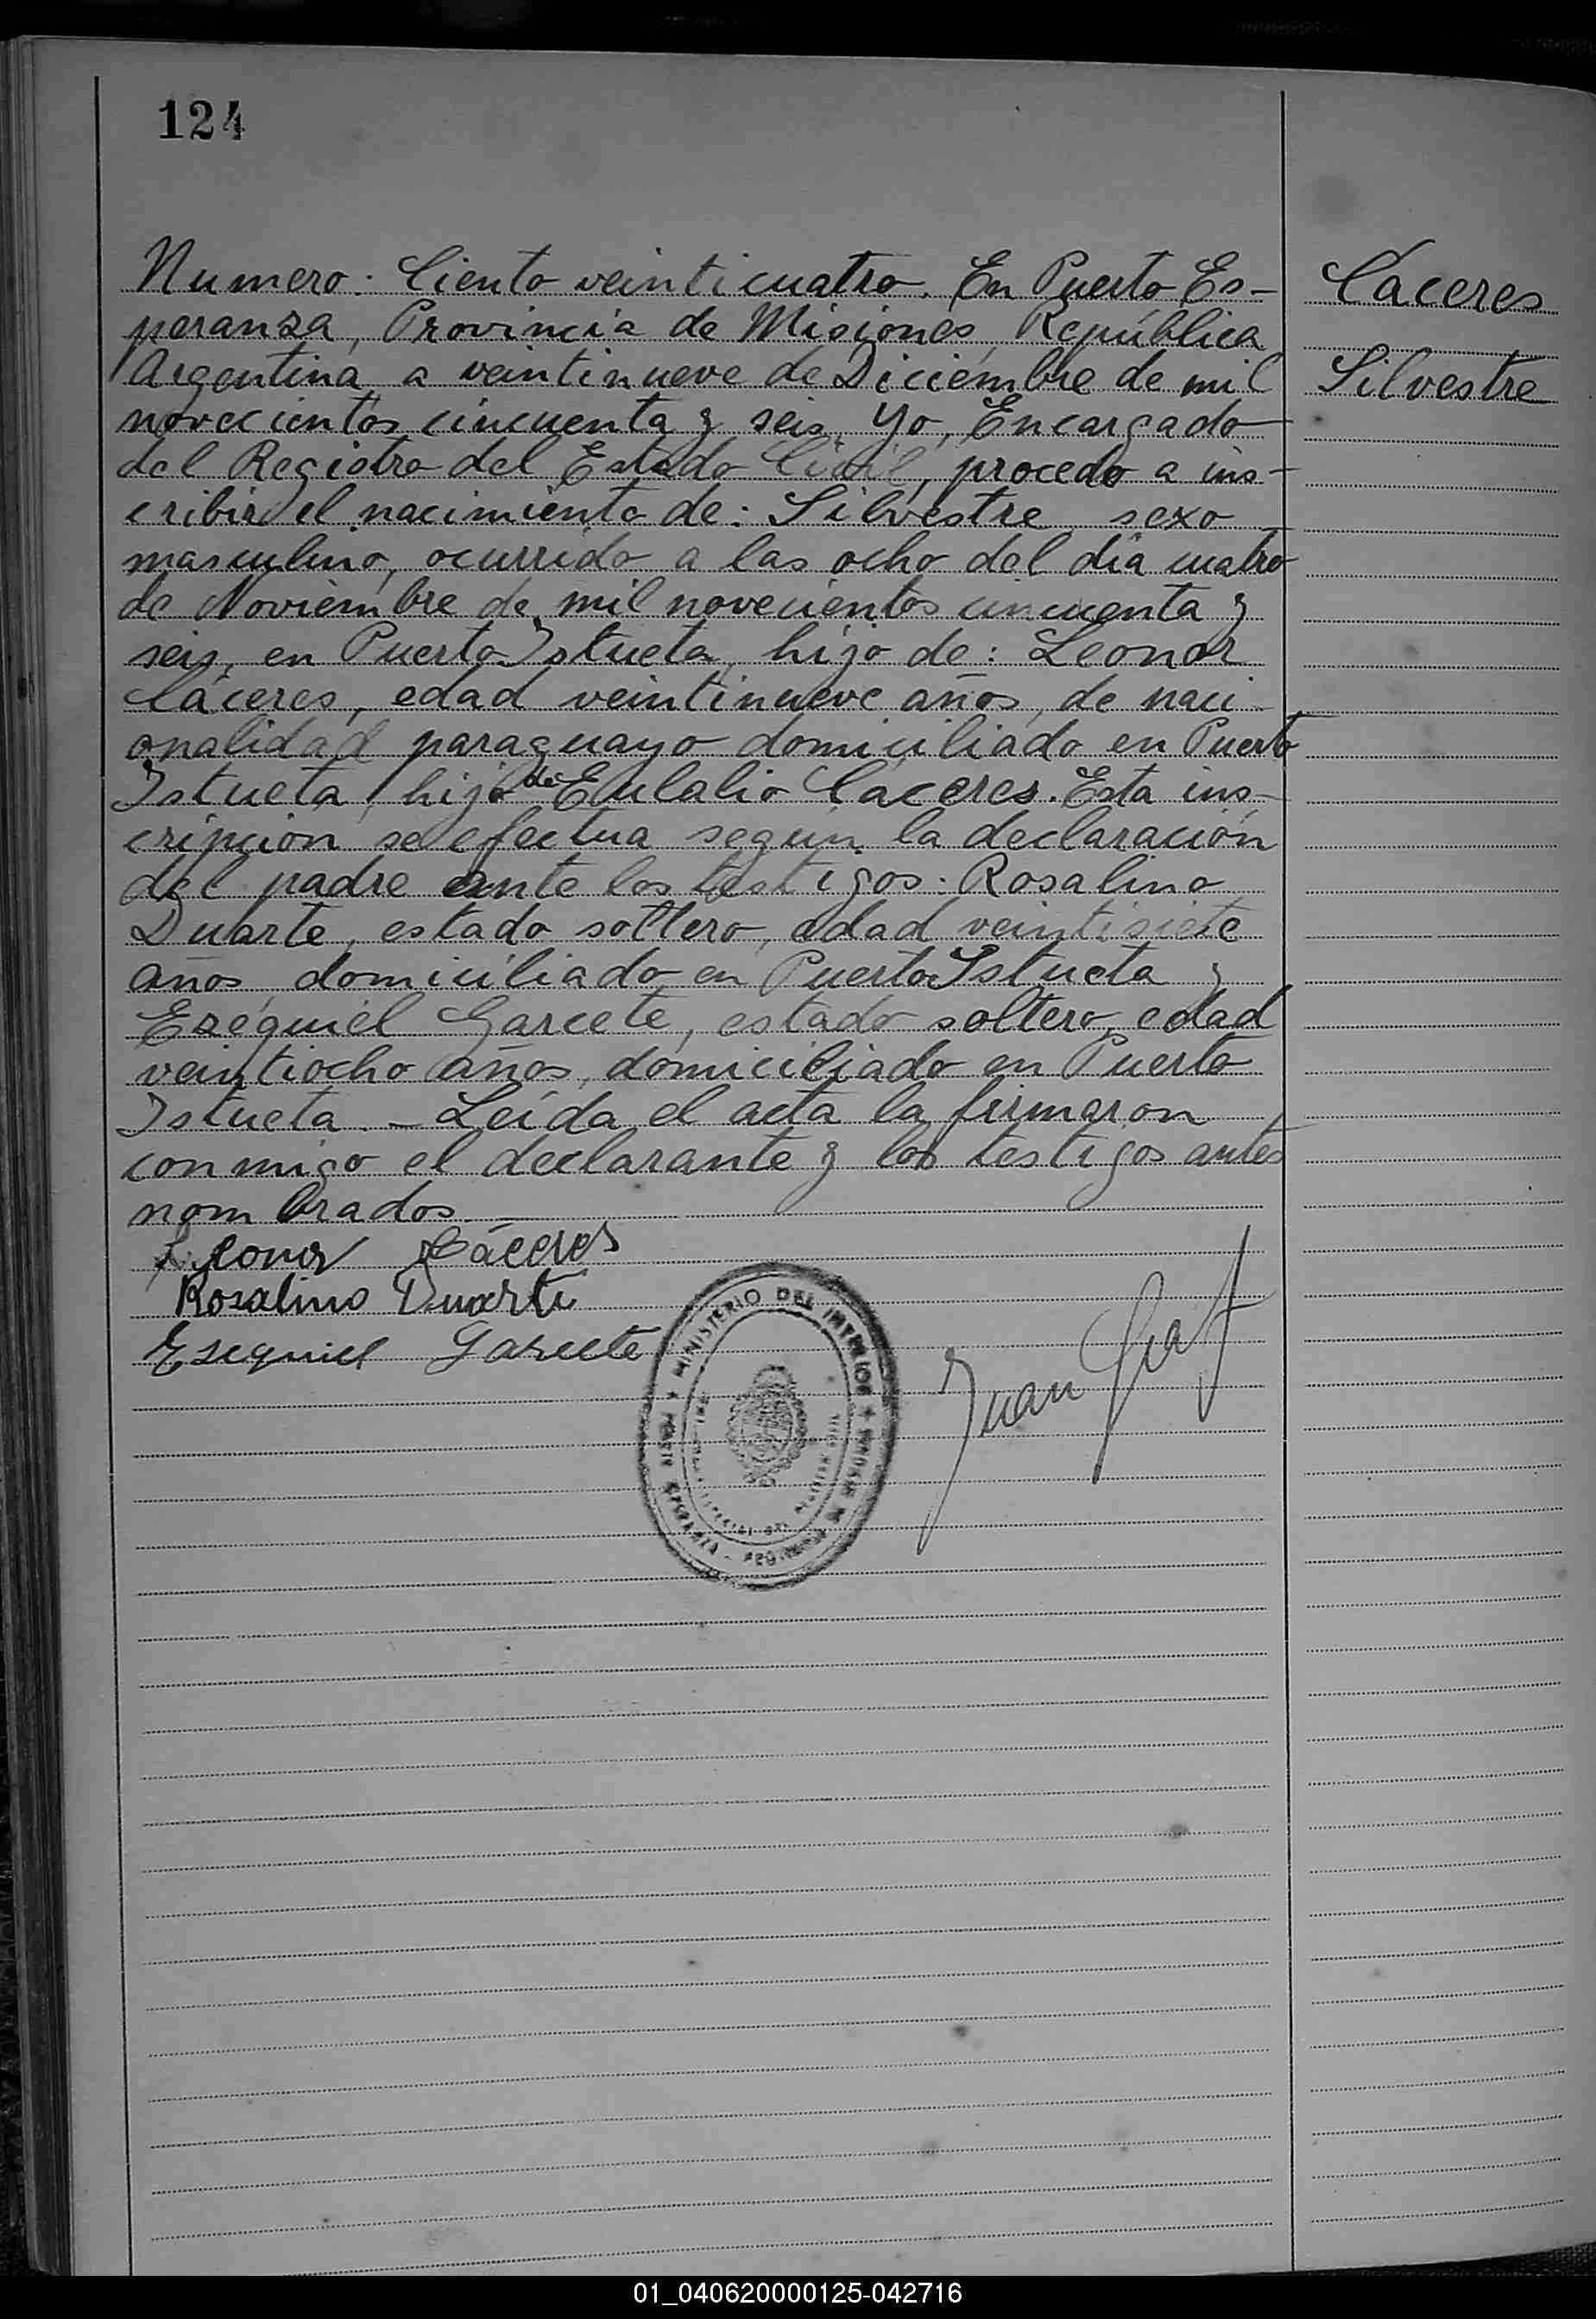 124
Numero: Ciento veinticuatro. En Puerto Es-
peranza, Provincia de Misiones, República
Argentina, a veintinueve de Diciembre de mil
novecientos cincuenta y seis, yo, Encargado
del Registro del Estado Civil, procedo a ins-
cribir el nacimiento de: Silvestre, sexo
masculino, ocurrido a las ocho del día cuatro
de Noviembre de mil novecientos cincuenta y
seis, en Puerto Istueta, hijo de: Leonor
Cáceres, edad veintinueve años, de naci-
onalidad paraguayo domiciliado en Puerto
Istueta, hijo de Eulalio Cáceres. Esta ins-
cripción se efectua según la declaración
del padre ante los testigos: Rosalino
Duarte, estado soltero, edad veintisiete
años, domiciliado en Puerto Istueta y
Ezéquiel Garcete, estado soltero, edad
veintiocho años, domiciliado en Puerto
Istueta. - Leída el acta la firmaron
conmigo el declarante y los testigos antes
nombrados.
Leonor Cáceres
Rosalino Duarte
Ezequiel Garcete
Juan
MINISTERIO DEL INTERIOR
Cáceres
Silvestre
01_040620000125-042716